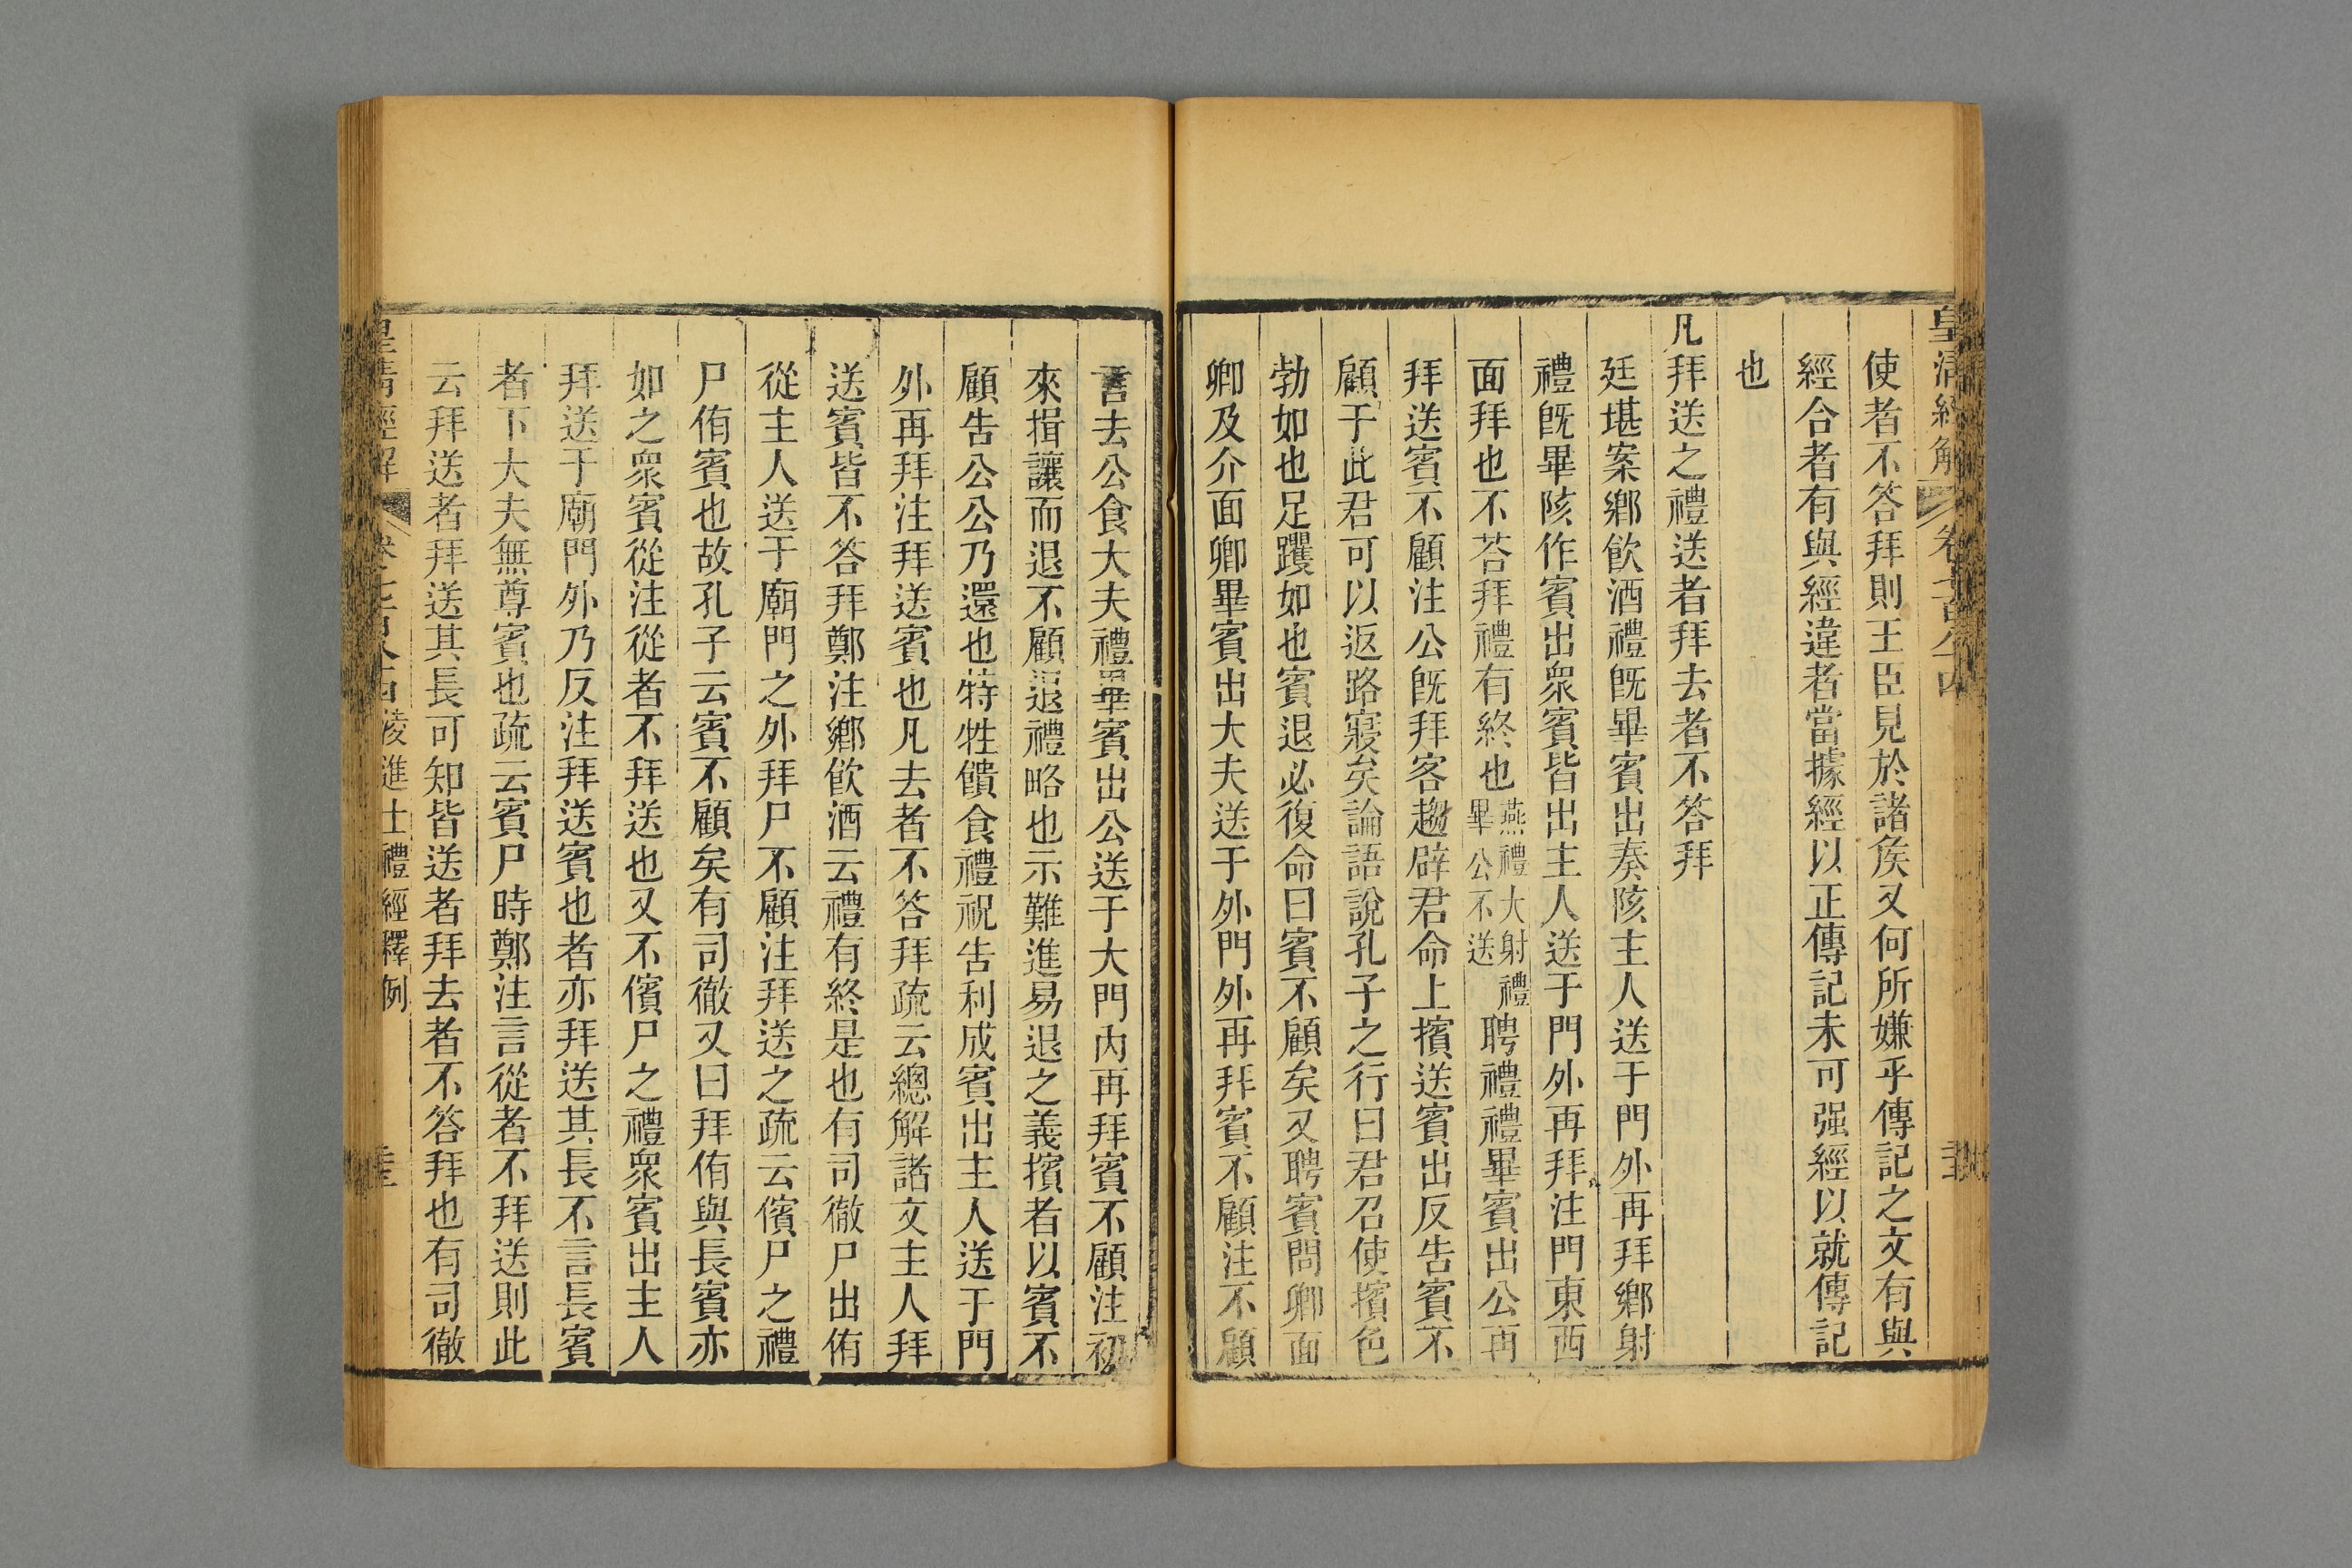 皇清經解 卷七百八十四
使者不答拜則王臣見於諸矦又何所嫌乎傳記之文有與
經合者有與經違者當據經以正傳記未可强經以就傳記
也
凡拜送之禮送者拜去者不答拜
廷堪案鄉飮酒禮旣畢賓出奏陔主人送于門外再拜鄉射
禮旣畢陔作賓出衆賓皆出主人送于門外再拜注門東西
面拜也不荅拜禮有終也燕禮大射禮畢公不送聘禮禮畢賓出公再
拜送賓不顧注公旣拜客趨辟君命上擯送賓出反告賓不
顧于此君可以返路寢矣論語說孔子之行曰君召使擯色
勃如也足躩如也賓退必復命曰賓不顧矣又聘賓問卿面
卿及介面卿畢賓出大夫送于外門外再拜賓不顧注不顧
言去公食大夫禮畢賓出公送于大門內再拜賓不顧注初
來揖讓而退不顧退禮略也示難進易退之義擯者以賓不
顧告公公乃還也特牲饋食禮祝告利成賓出主人送于門
外再拜注拜送賓也凡去者不答拜疏云總解諸文主人拜
送賓皆不答拜鄭注鄉飮酒云禮有終是也有司徹尸出侑
從主人送于廟門之外拜尸不顧注拜送之疏云儐尸之禮
尸侑賓也故孔子云賓不顧矣有司徹又曰拜侑與長賓亦
如之衆賓從注從者不拜送也又不儐尸之禮衆賓出主人
拜送于廟門外乃反注拜送賓也者亦拜送其長不言長賓
者下大夫無尊賓也疏云賓尸時鄭注言從者不拜送則此
云拜送者拜送其長可知皆送者拜去者不答拜也有司徹
皇清經解 卷七百八十四 凌進士禮經釋例